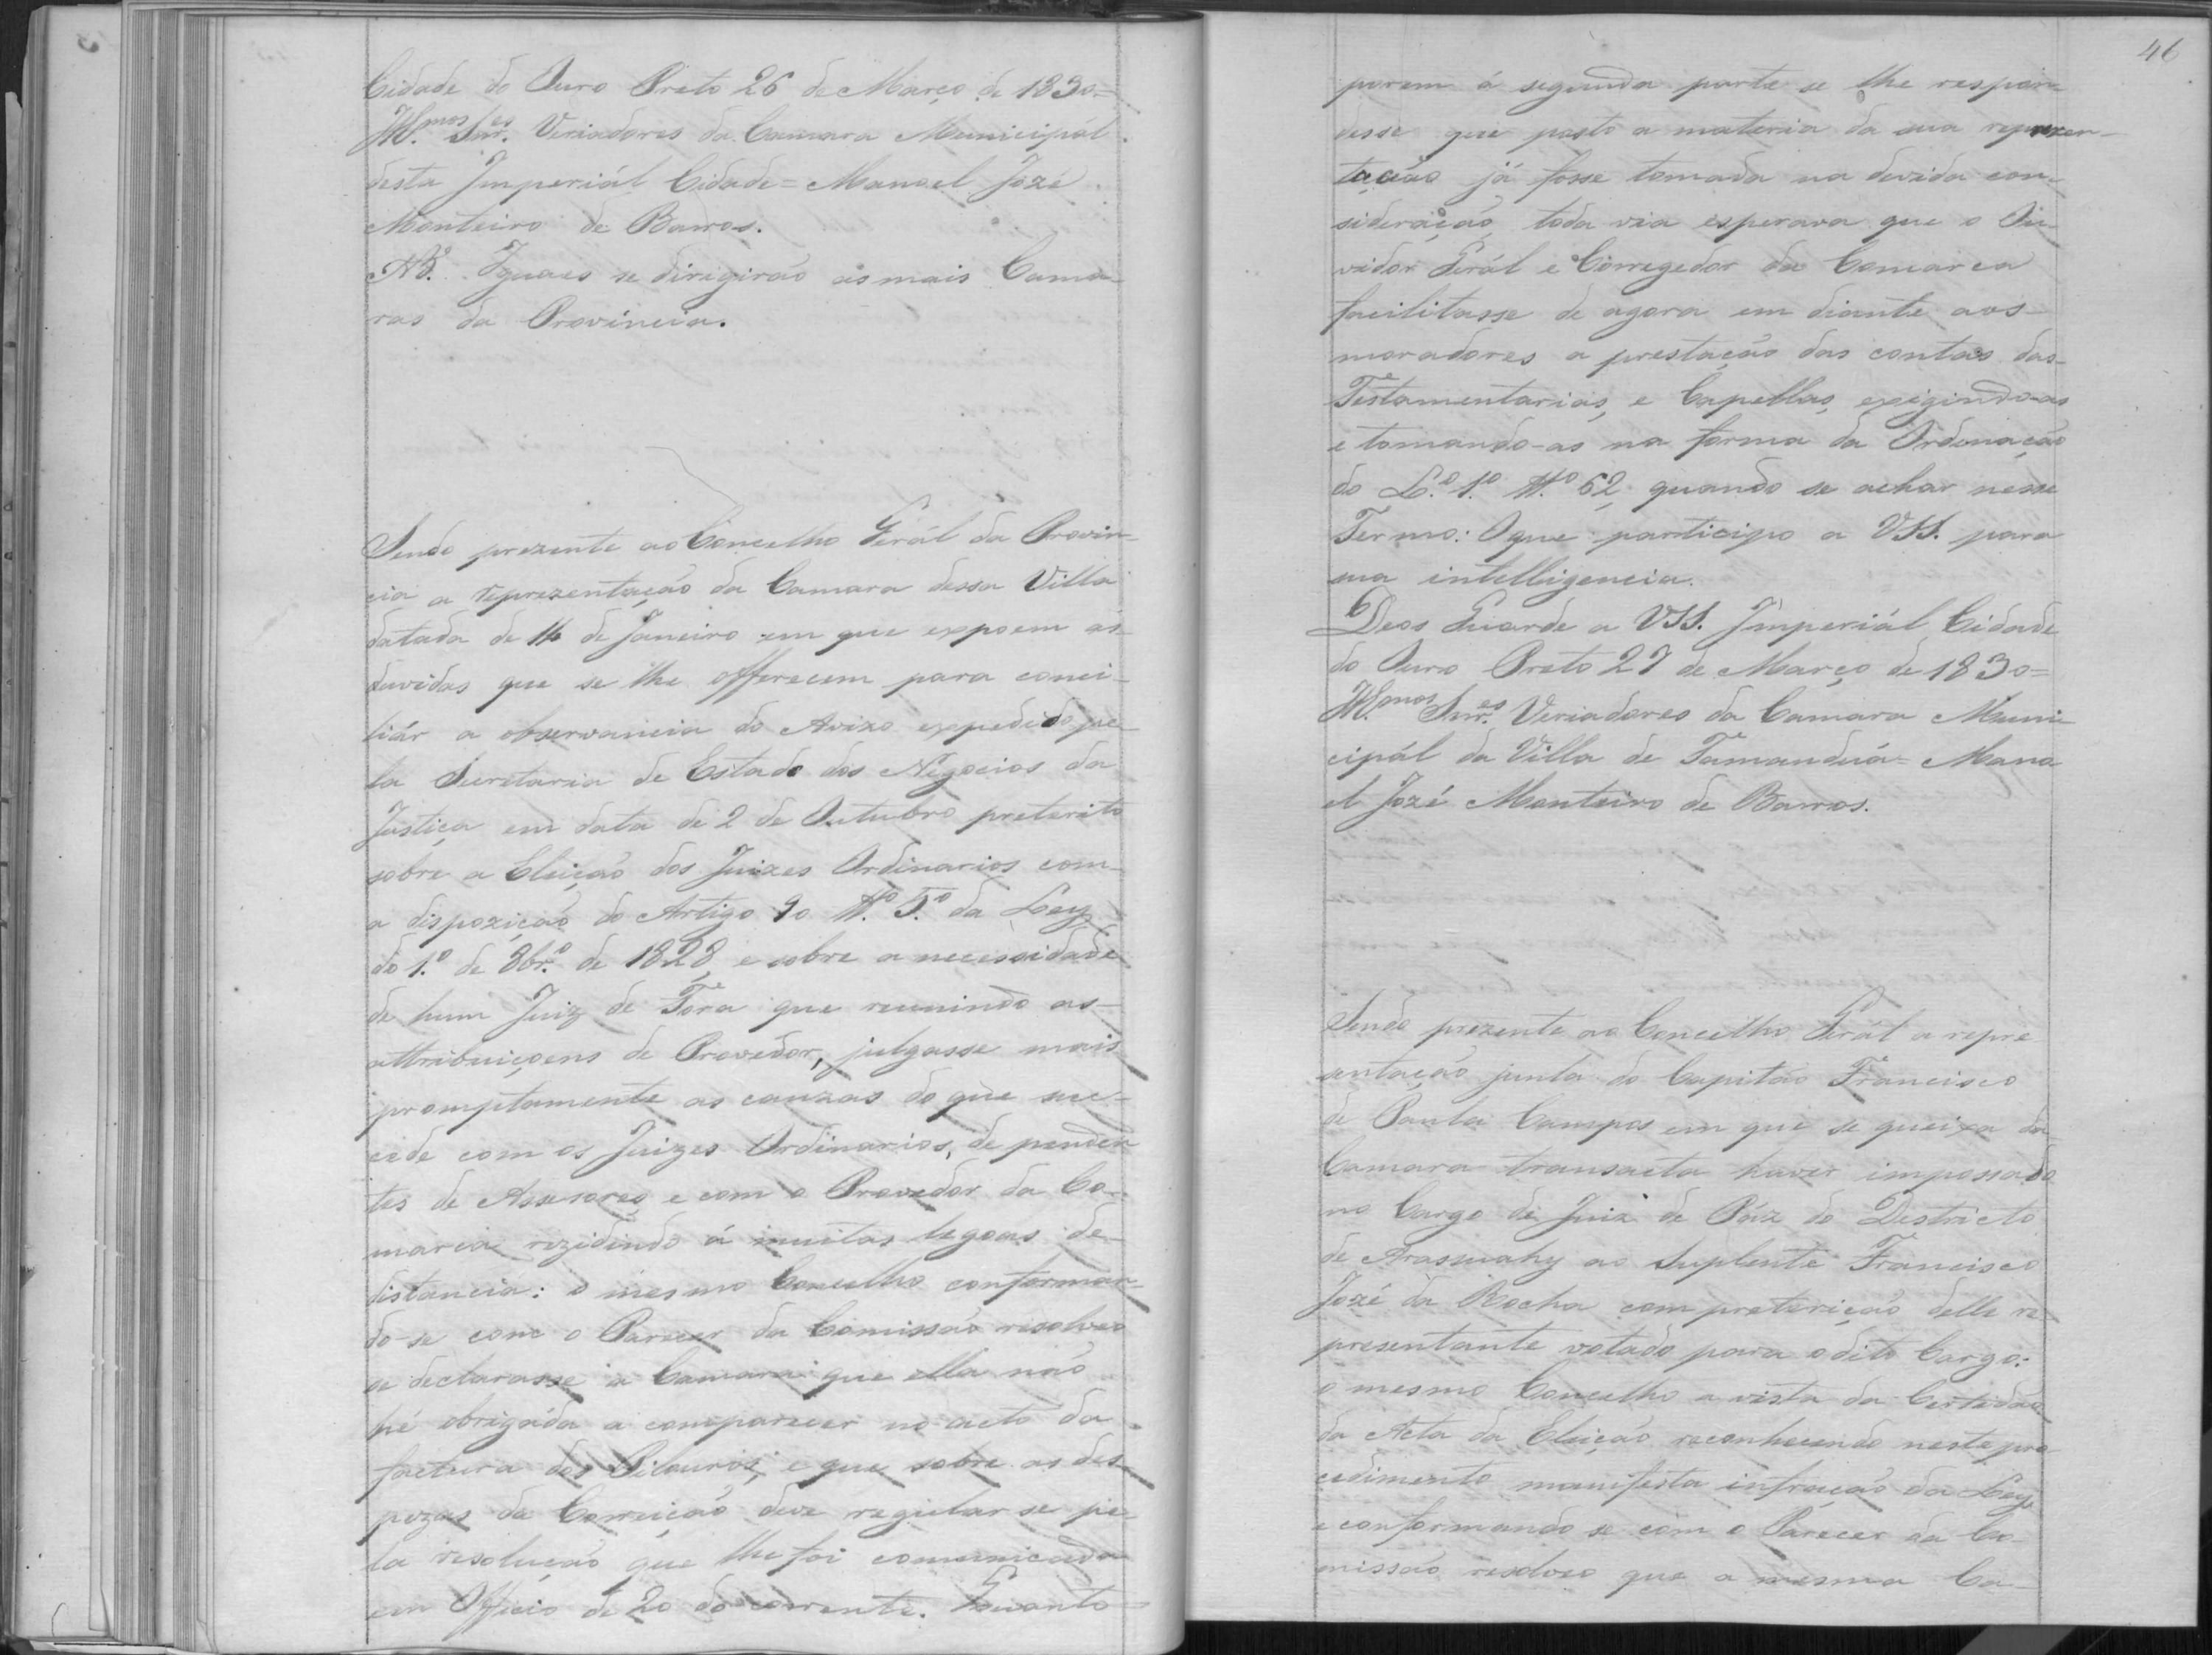 Cidade do Ouro Preto 26 de Março de 1830=
Ill.mos Snr.es Veriadores da Camara Municipál
desta Imperiál Cidade= Manoel Jozé
Monteiro de Barros.
NB. Iguaes se dirigirão as mais Cama-
ras da Provincia.
Sendo prezente ao Concelho Gerál da Provin-
cia a reprezentação da Camara dessa Villa
datada de 14 de Janeiro em que expoem as
duvidas que se lhe offerecem para conci-
liár a observancia do Avizo expedido pe-
la Secretaria de Estado dos Negocios da
Justiça em data de 2 de Outubro preterito
sobre a Eleição dos Juizes Ordinarios com
a dispozição do Artigo 90 tt.º 5.º da Ley
do 1.º de 8br.º de 1828, e sobre a necessidade
de hum Juiz de Fóra que reunindo as
attribuiçoens de Provedor, julgasse mais
promptamente as cauzas do que suc-
cede com os Juizes Ordinarios, de penden
tes de Assesores, e com o Provedor da Co-
marca rezidindo á muitas legoas de
distancia: o mesmo Concelho conforman-
do-se com o Parecer da Comissão resolveo
se declarasse a Camara que ella não
hé obrigáda a comparecer no acto da
factura dos Pilouros, e que sobre as des-
pezas da Correição deve regular se pe-
la resolução que lhe foi comunicada
em Officio de 20 do corrente. Quanto
46
porem á segunda parte se lhe respon-
desse que posto a materia da sua reprezen-
tação já fosse tomada na devida con-
sideração, toda via esperava que o Ou-
vidor Gerál e Corregedor da Comarca
facilitasse de agora em diante aos
moradores a prestação das contas das
Testamentarias, e Capellas, exigindo-as
e tomando-as na forma da Ordenação
do L.º 1.º tt.º 62, quando se achar nesse
Termo: O que participo a VSS. para
sua intelligencia.
Deos Guarde a VSS. Imperiál Cidade
do Ouro Preto 27 de Março de 1830=
Ill.mos Snr.es Veriadores da Camara Muni-
cipál da Villa de Tamanduá= Mano
el Jozé Monteiro de Barros.
Sendo prezente ao Concelho Gerál a repre
sentação junta do Capitão Francisco
de Paula Campos em que se queixa da
Camara transacta haver impossado
no Cargo de Juiz de Páz do Destricto
de Arassuahy ao Suplente Francisco
Jozé da Rocha com preterição delle re
presentante votado para o dito Cargo:
o mesmo Concelho a vista da Certidão
da Acta da Eleição reconhecendo neste pro
cedimento manifesta infração da Ley
e conformando se com o Parecer da Co-
missão resolveo que a mesma Ca-